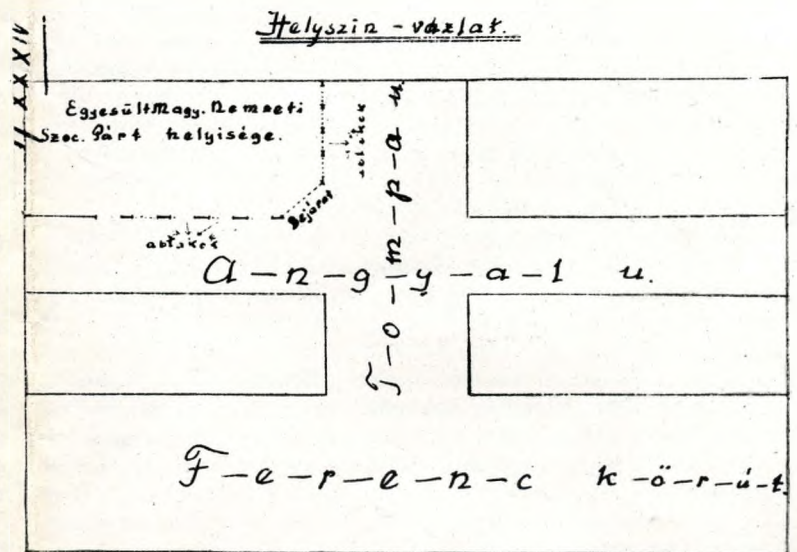 Helyszin - vázlat.
XXXIV
Egyesült Magy. Nemzeti
Szoc. Párt helyisége.
ablakok
Bejárat
ablakok
T-o-m-p-a u.
A-n-g-y-a-l u.
F-e-r-e-n-c k-ö-r-ú-t.